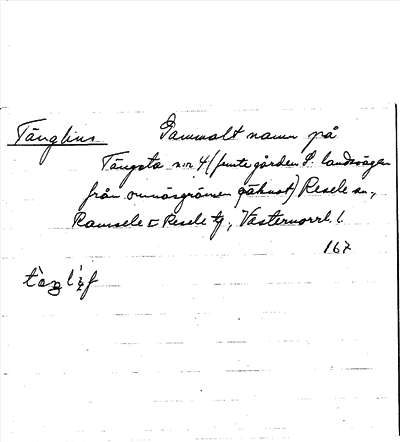 Tänglius Gammalt namn på
Tängsta nr 4 (femte gården S. landsvägen
från omnäsgränsen räknat) Resele sn,
Ramsele o Resele tg, Västernorrl. l.
167